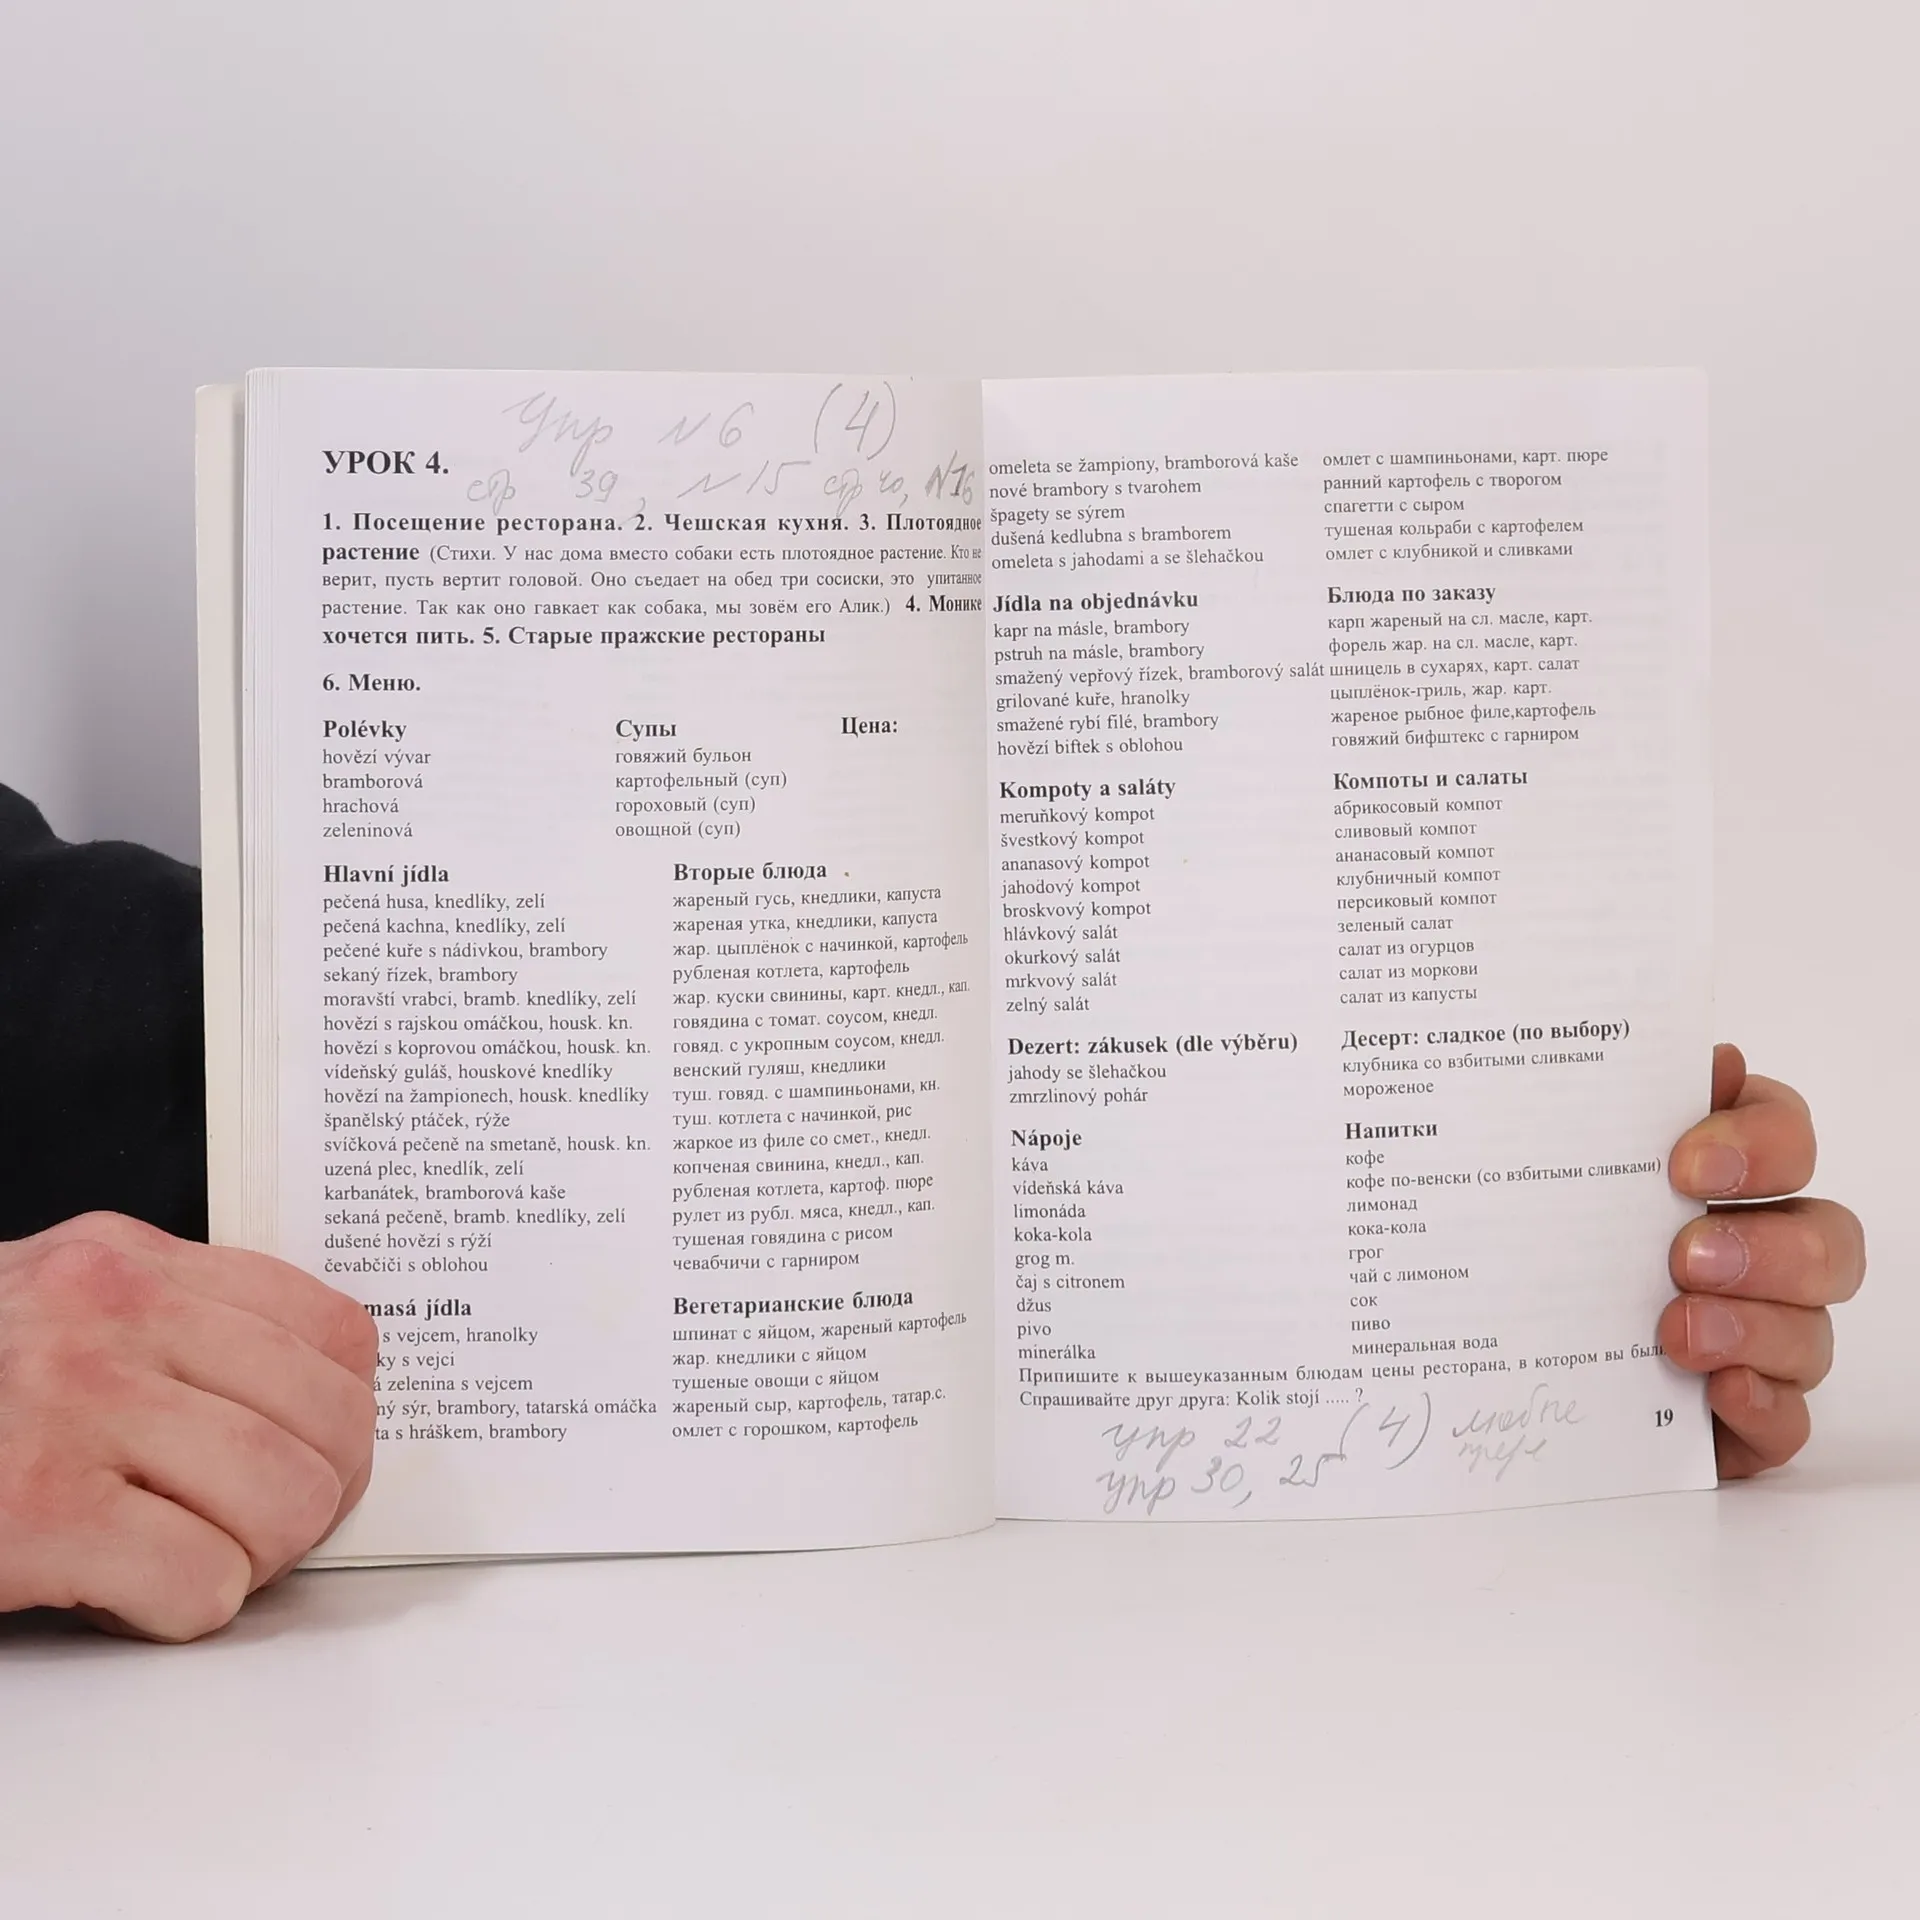 Упр N 6 (4)
УРОК 4.
стр 39, N 15 стр 40, N 16
1. Посещение ресторана. 2. Чешская кухня. 3. Плотоядное
растение (Стихи. У нас дома вместо собаки есть плотоядное растение. Кто не
верит, пусть вертит головой. Оно съедает на обед три сосиски, это упитанное
растение. Так как оно гавкает как собака, мы зовём его Алик.) 4. Монике
хочется пить. 5. Старые пражские рестораны
6. Меню.
Polévky Супы Цена:
hovězí vývar говяжий бульон
bramborová картофельный (суп)
hrachová гороховый (суп)
zeleninová овощной (суп)
Hlavní jídla Вторые блюда
pečená husa, knedlíky, zelí жареный гусь, кнедлики, капуста
pečená kachna, knedlíky, zelí жареная утка, кнедлики, капуста
pečené kuře s nádivkou, brambory жар. цыплёнок с начинкой, картофель
sekaný řízek, brambory рубленая котлета, картофель
moravští vrabci, bramb. knedlíky, zelí жар. куски свинины, карт. кнедл., кап.
hovězí s rajskou omáčkou, housk. kn. говядина с томат. соусом, кнедл.
hovězí s koprovou omáčkou, housk. kn. говяд. с укропным соусом, кнедл.
vídeňský guláš, houskové knedlíky венский гуляш, кнедлики
hovězí na žampionech, housk. knedlíky туш. говяд. с шампиньонами, кн.
španělský ptáček, rýže туш. котлета с начинкой, рис
svíčková pečeně na smetaně, housk. kn. жаркое из филе со смет., кнедл.
uzená plec, knedlík, zelí копченая свинина, кнедл., кап.
karbanátek, bramborová kaše рубленая котлета, картоф. пюре
sekaná pečeně, bramb. knedlíky, zelí рулет из рубл. мяса, кнедл., кап.
dušené hovězí s rýží тушеная говядина с рисом
čevabčiči s oblohou чевабчичи с гарниром
masá jídla Вегетарианские блюда
s vejcem, hranolky шпинат с яйцом, жареный картофель
ky s vejci жар. кнедлики с яйцом
á zelenina s vejcem тушеные овощи с яйцом
ný sýr, brambory, tatarská omáčka жареный сыр, картофель, татар.с.
ta s hráškem, brambory омлет с горошком, картофель
omeleta se žampiony, bramborová kaše омлет с шампиньонами, карт. пюре
nové brambory s tvarohem ранний картофель с творогом
špagety se sýrem спагетти с сыром
dušená kedlubna s bramborem тушеная кольраби с картофелем
omeleta s jahodami a se šlehačkou омлет с клубникой и сливками
Jídla na objednávku Блюда по заказу
kapr na másle, brambory карп жареный на сл. масле, карт.
pstruh na másle, brambory форель жар. на сл. масле, карт.
smažený vepřový řízek, bramborový salát шницель в сухарях, карт. салат
grilované kuře, hranolky цыплёнок-гриль, жар. карт.
smažené rybí filé, brambory жареное рыбное филе,картофель
hovězí biftek s oblohou говяжий бифштекс с гарниром
Kompoty a saláty Компоты и салаты
meruňkový kompot абрикосовый компот
švestkový kompot сливовый компот
ananasový kompot ананасовый компот
jahodový kompot клубничный компот
broskvový kompot персиковый компот
hlávkový salát зеленый салат
okurkový salát салат из огурцов
mrkvový salát салат из моркови
zelný salát салат из капусты
Dezert: zákusek (dle výběru) Десерт: сладкое (по выбору)
jahody se šlehačkou клубника со взбитыми сливками
zmrzlinový pohár мороженое
Nápoje Напитки
káva кофе
vídeňská káva кофе по-венски (со взбитыми сливками)
limonáda лимонад
koka-kola кока-кола
grog m. грог
čaj s citronem чай с лимоном
džus сок
pivo пиво
minerálka минеральная вода
Припишите к вышеуказанным блюдам цены ресторана, в котором вы были
Спрашивайте друг друга: Kolik stojí ..... ?
19
упр 22 (4)
упр 30, 25